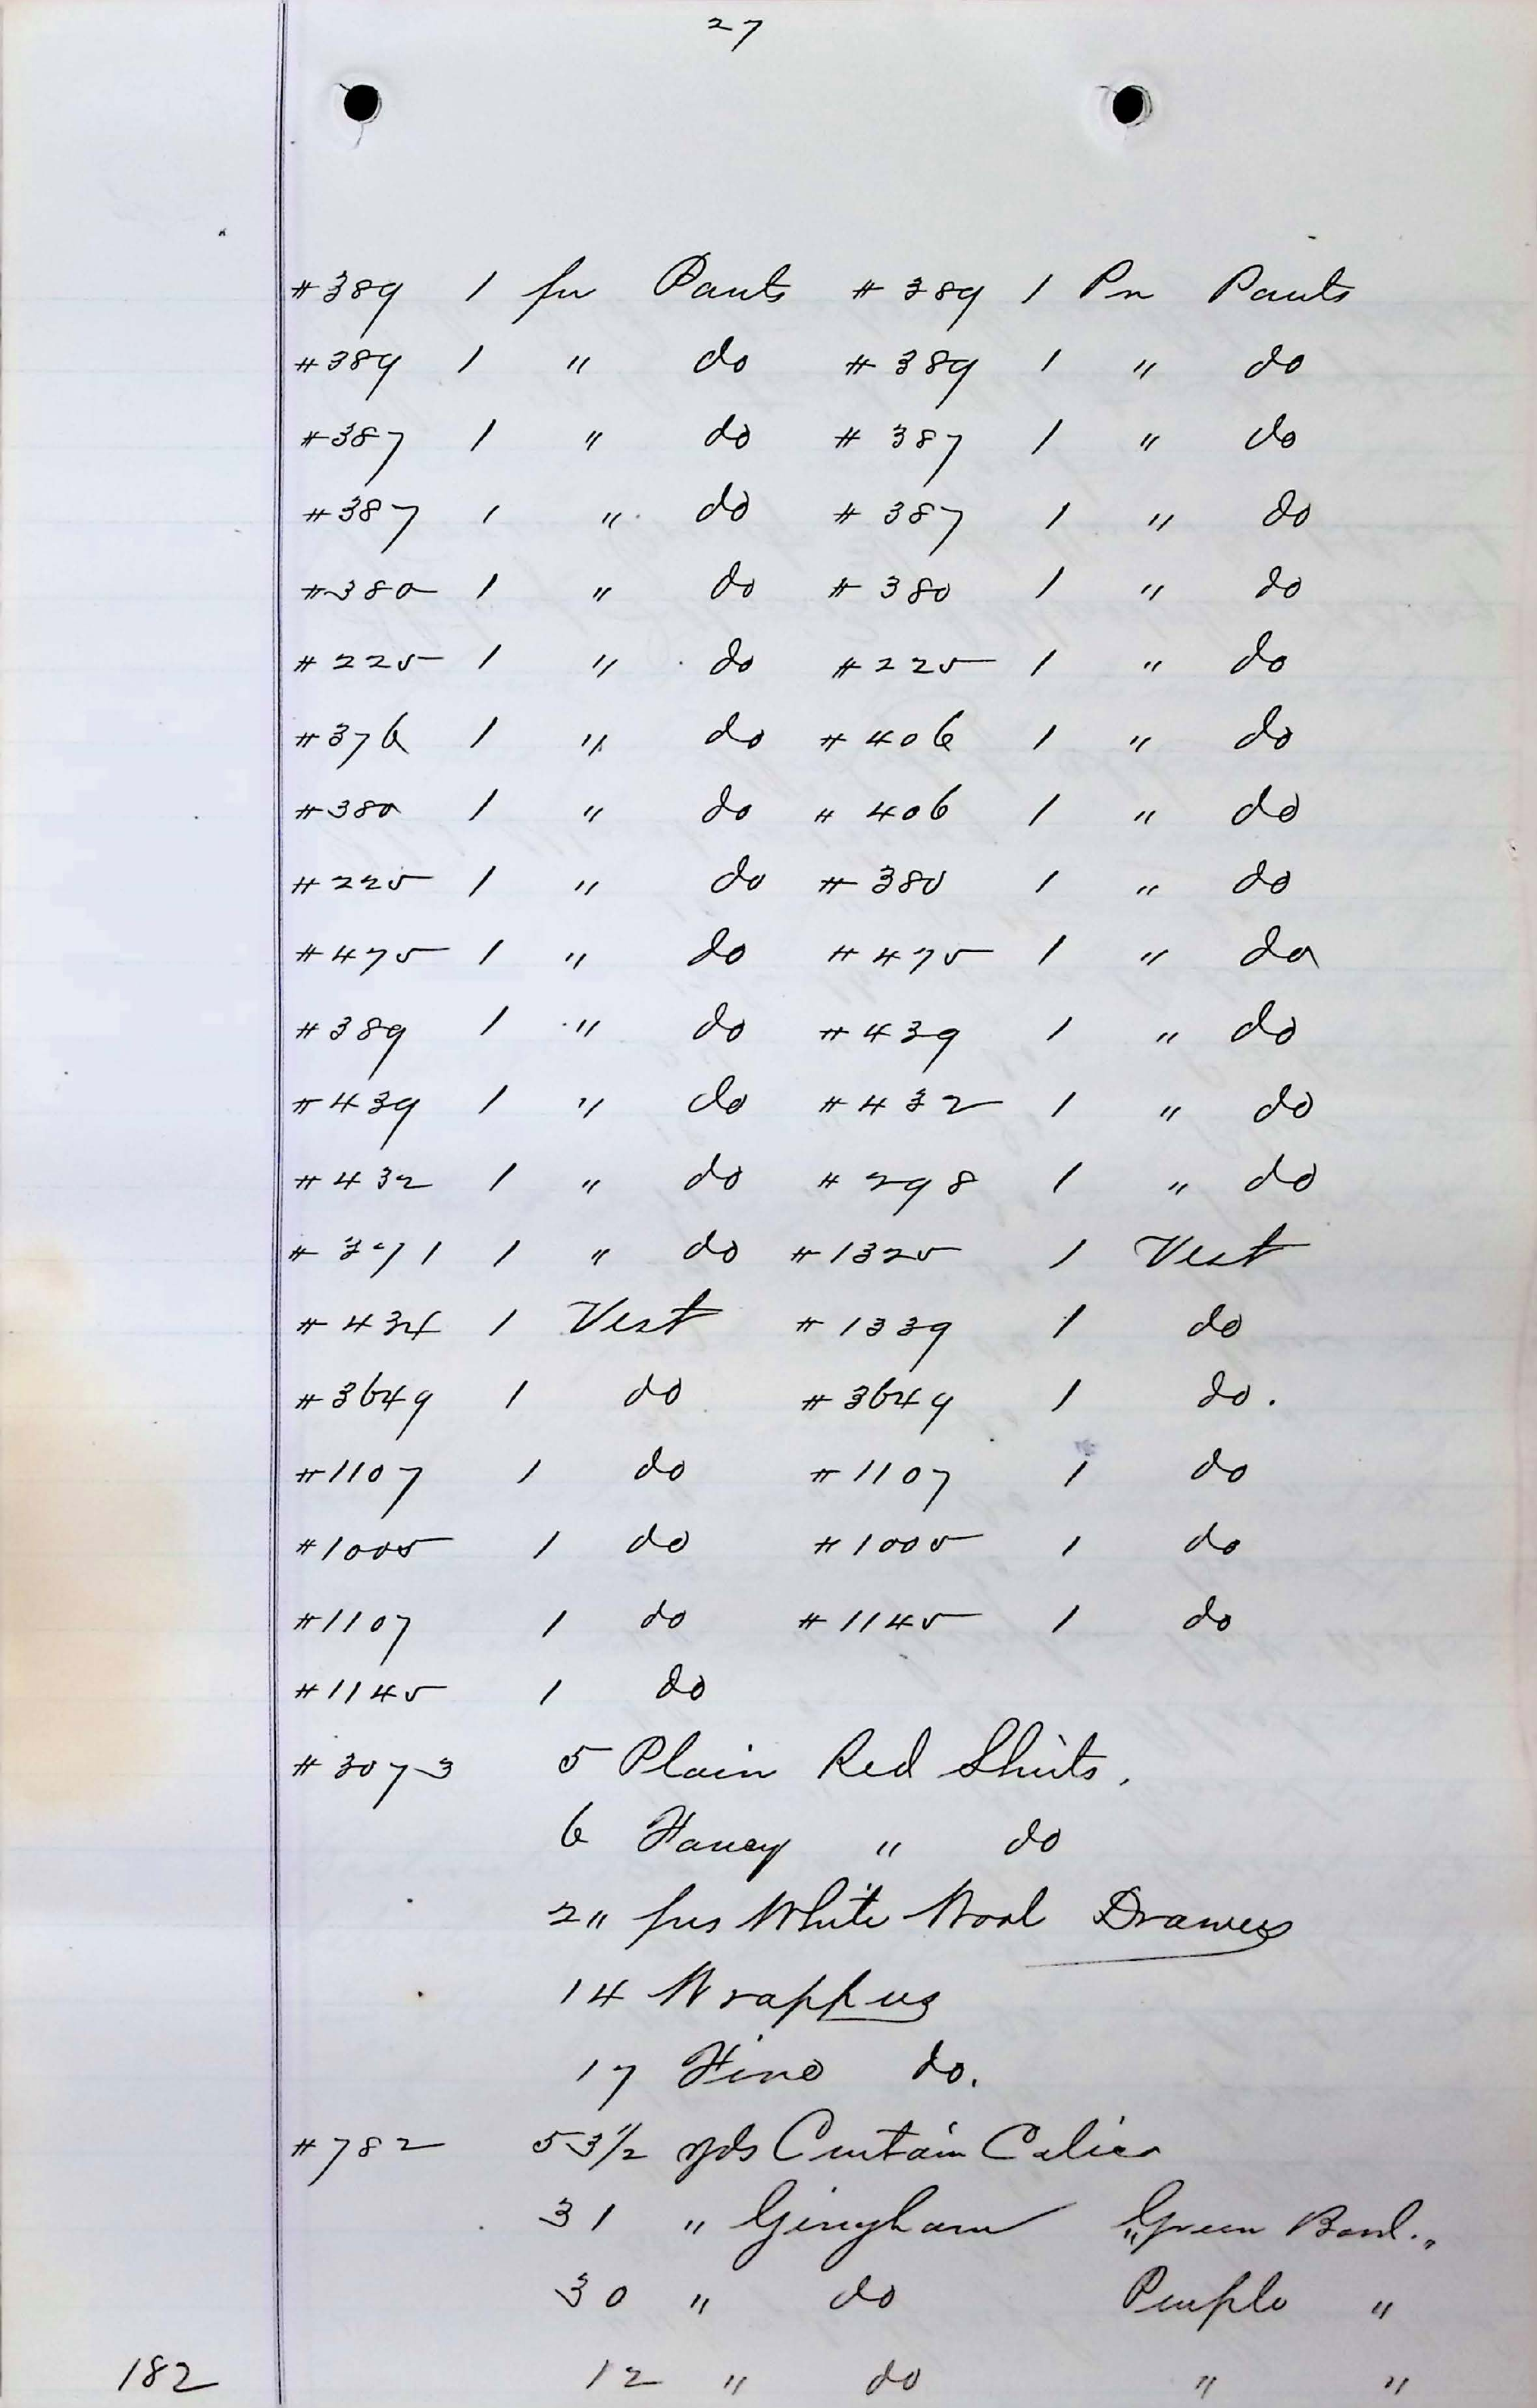 27
#389 1 pr Pants #389 1 Pr Pants
#389 1 " do #389 1 " do
#387 1 " do #387 1 " do
#387 1 " do #387 1 " do
#380 1 " do #380 1 " do
#225 1 " do #225 1 " do
#376 1 " do #406 1 " do
#380 1 " do #406 1 " do
#225 1 " do #380 1 " do
#475 1 " do #475 1 " do
#389 1 " do #439 1 " do
#439 1 " do #432 1 " do
#432 1 " do #298 1 " do
#371 1 " do #1325 1 Vest
#434 1 Vest #1339 1 do
#3649 1 do #3649 1 do.
#1107 1 do #1107 1 do
#1005 1 do #1005 1 do
#1107 1 do #1145 1 do
#1145 1 do
#3073 5 Plain Red Shirts.
6 Fancy " do
2 " prs White Wool Drawers
14 Wrappers
17 Fine do.
#782 53 1/2 yds Curtain Calico
31 " Gingham "Green Band."
30 " do Purple "
182 12 " do " "